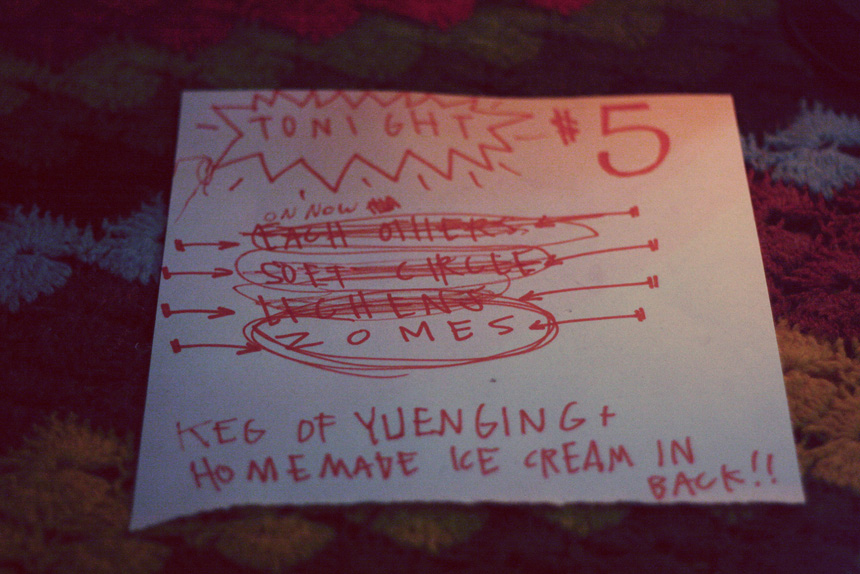 TONIGHT #5
ON NOW
EACH OTHERS
SOFT CIRCLE
LICHENS
ZOMES
KEG OF YUENGING +
HOMEMADE ICE CREAM IN
BACK!!